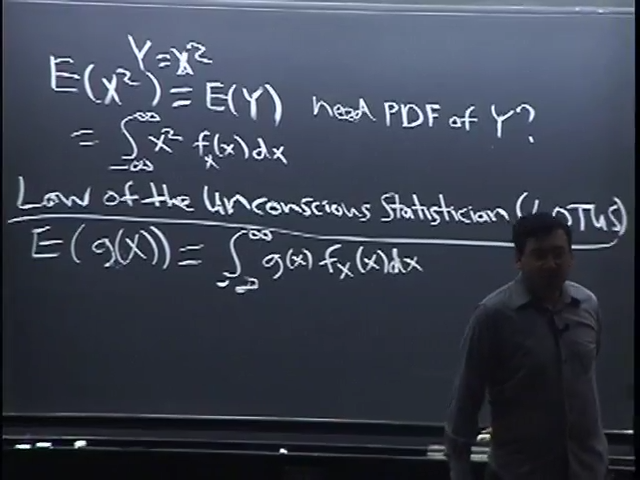 Y = X²
E(X²) = E(Y) need PDF of Y?
= ∫_{-∞}^{∞} x² f_X(x) dx
Law of the Unconscious Statistician (LOTUS)
E(g(X)) = ∫_{-∞}^{∞} g(x) f_X(x) dx